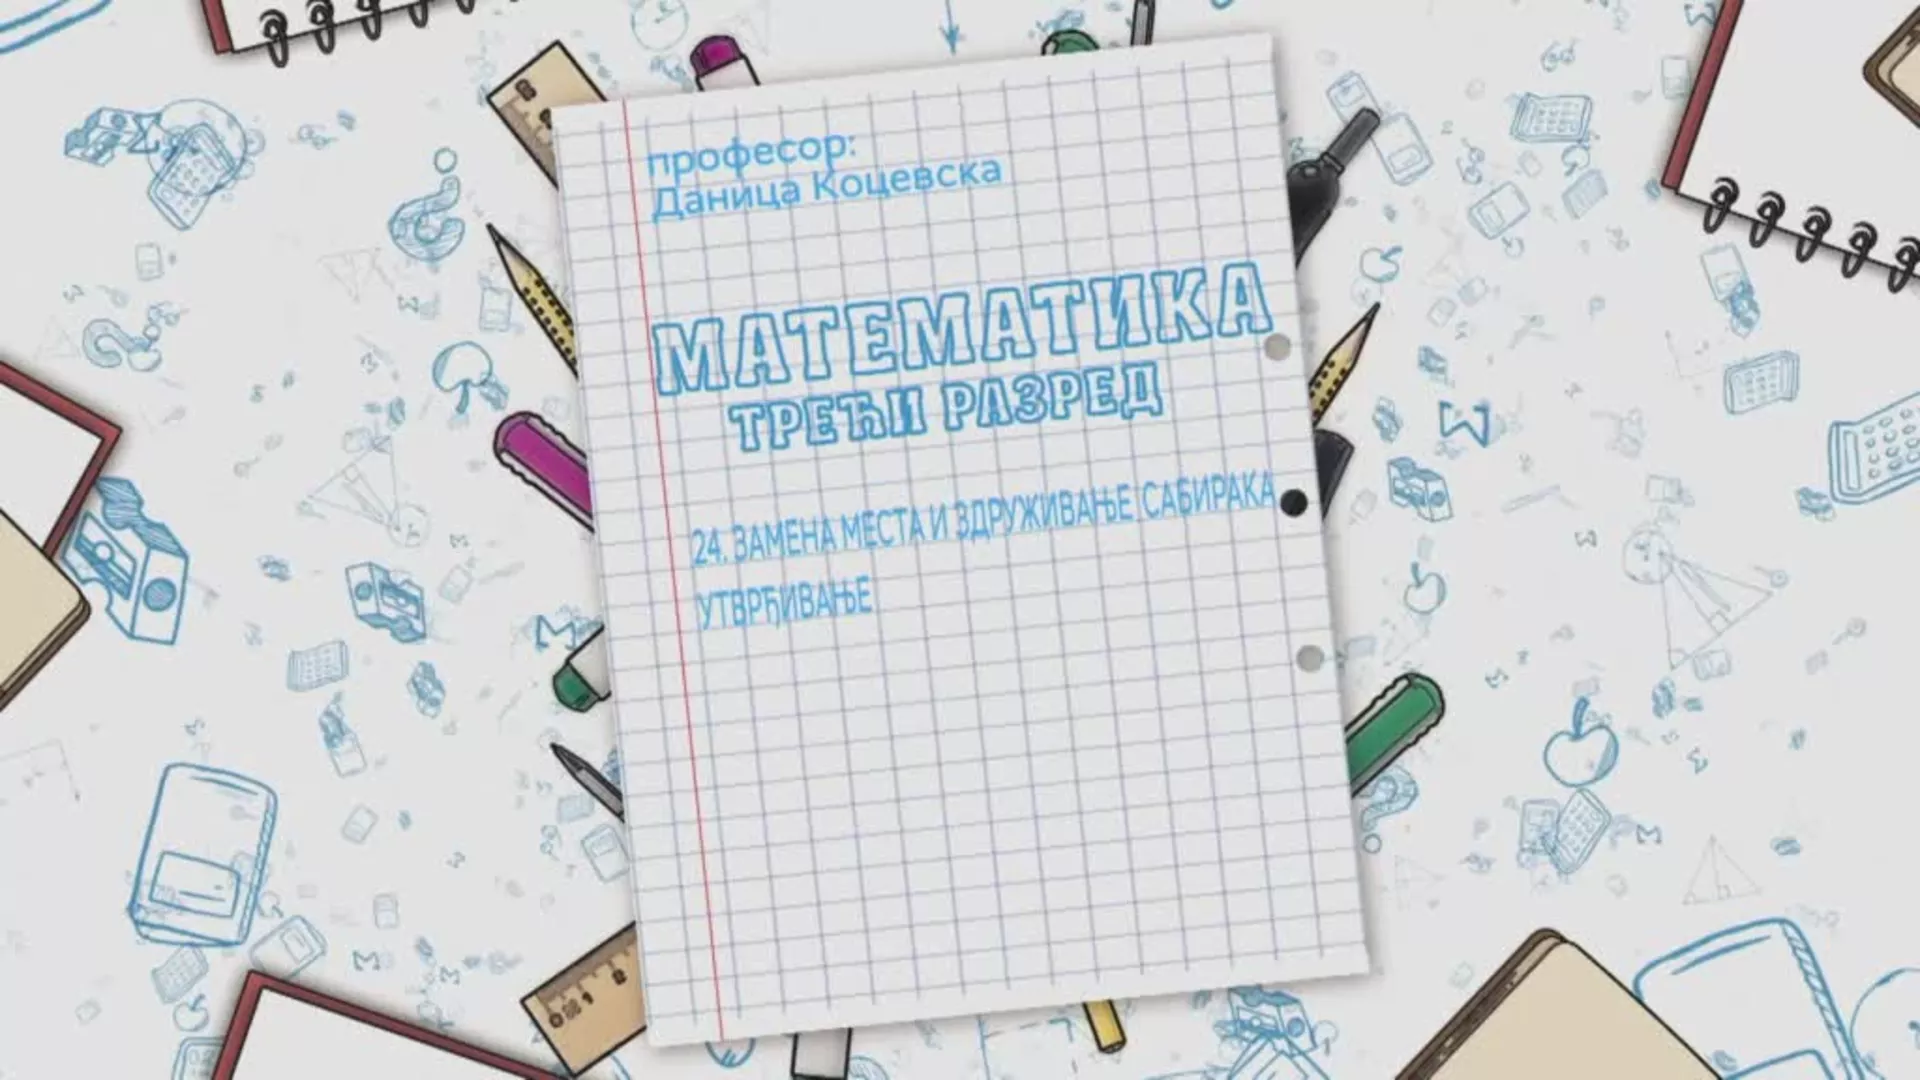 професор:
Даница Коцевска
МАТЕМАТИКА
ТРЕЋИ РАЗРЕД
24. ЗАМЕНА МЕСТА И ЗДРУЖИВАЊЕ САБИРАКА
УТВРЂИВАЊЕ